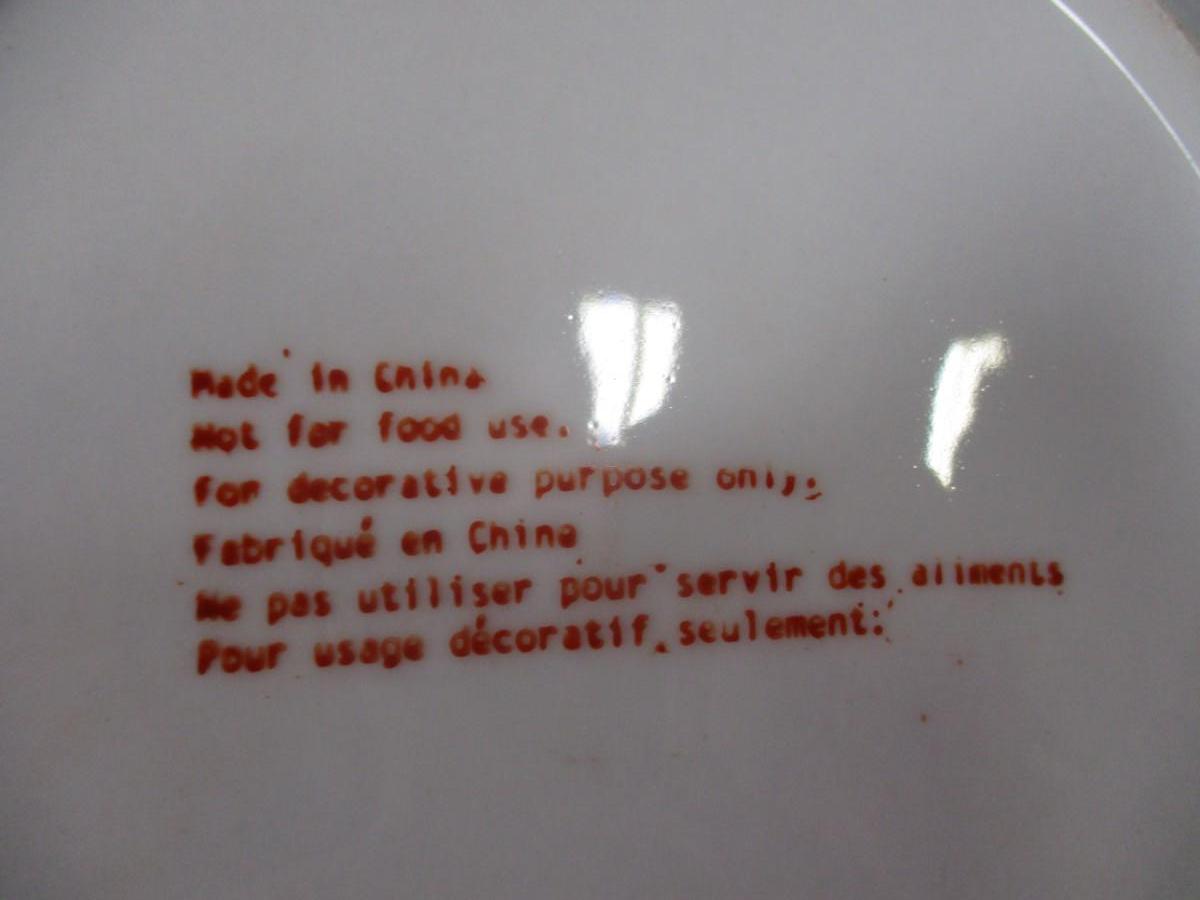 Made in China
Not for food use.
for decorative purpose only.
Fabriqué en China
Ne pas utiliser pour servir des aliments
Pour usage décoratif seulement.